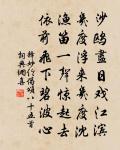 沙鸥尽日戏江滨
莫度浮来莫度沈
渔笛一声惊起去
依前飞下碧波心
释妙伦偈颂八十五首
词典网喜